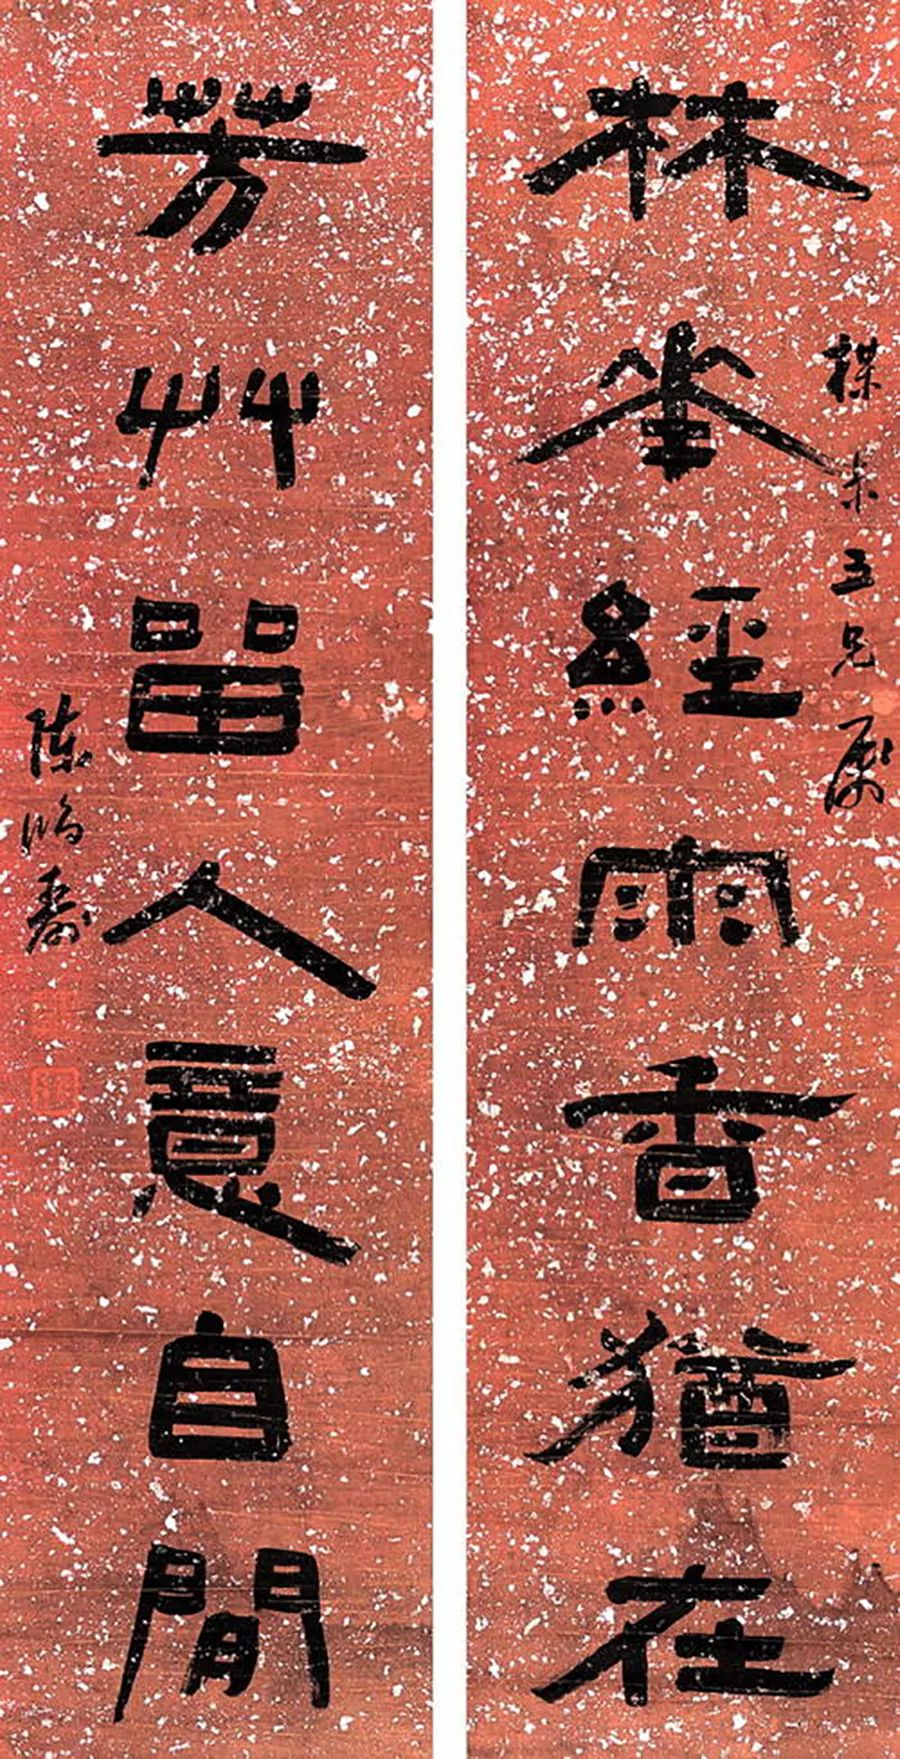 五兄属
林華經雨香猶在
芳艸留人意自閒
陳鴻壽